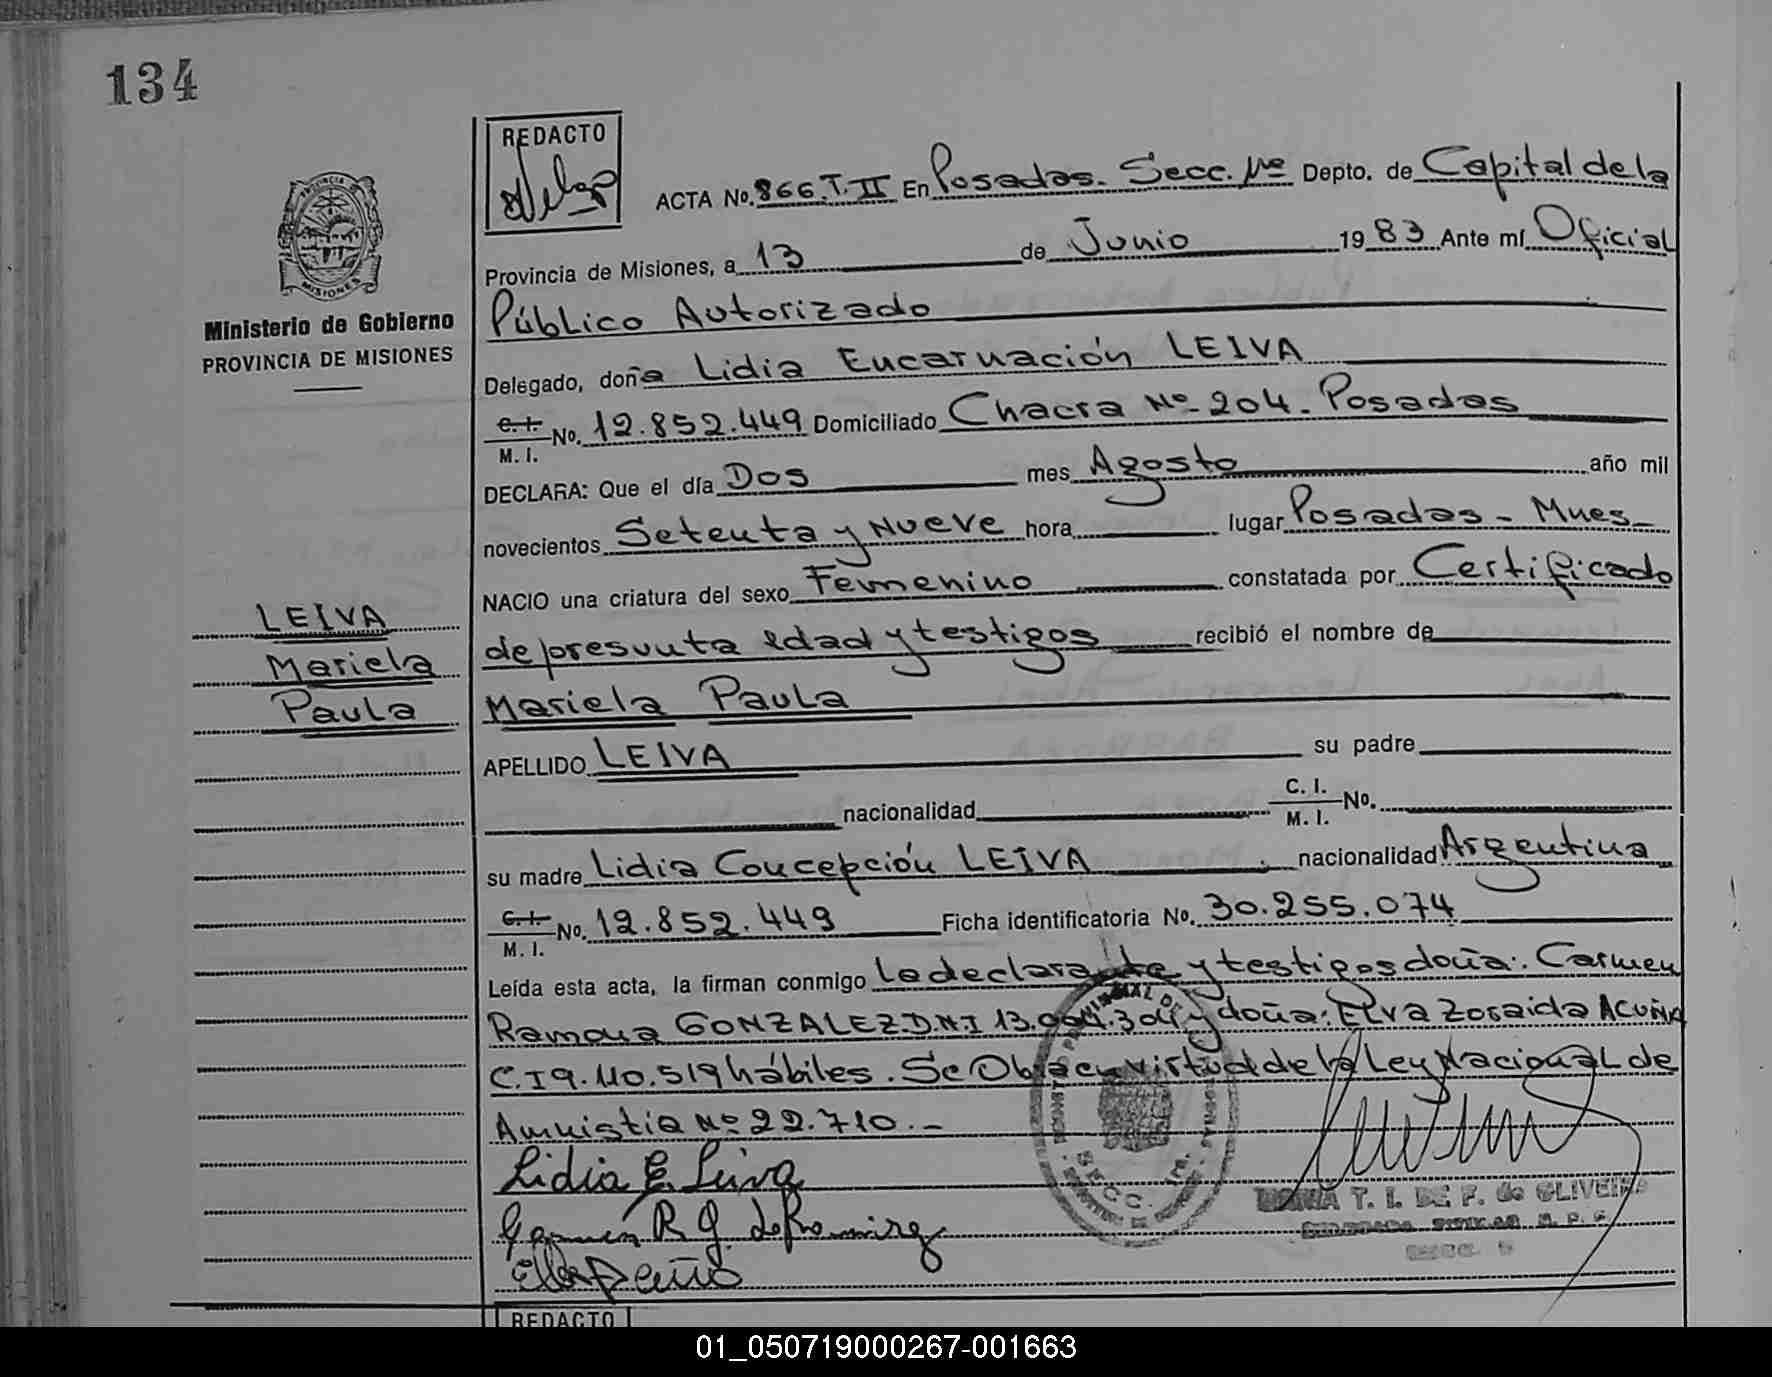 134
REDACTO
ACTA No. 866.T.II En Posadas. Secc. 1ra Depto. de Capital de la
Provincia de Misiones, a 13 de Junio 1983 Ante mí Oficial
PROVINCIA
MISIONES
Ministerio de Gobierno
PROVINCIA DE MISIONES
Público Autorizado
Delegado, doña Lidia Encarnación LEIVA
C.I.
M. I. No. 12.852.449 Domiciliado Chacra No-204. Posadas
DECLARA: Que el día Dos mes Agosto año mil
novecientos Setenta y Nueve hora lugar Posadas - Mnes-
NACIO una criatura del sexo Femenino constatada por Certificado
de presunta edad y testigos recibió el nombre de
LEIVA
Mariela
Paula
Mariela Paula
APELLIDO LEIVA su padre
nacionalidad C. I.
M. I. No.
su madre Lidia Concepción LEIVA. nacionalidad Argentina
C.I.
M. I. No. 12.852.449 Ficha identificatoria No. 30.255.074
Leída esta acta, la firman conmigo la declarante y testigos doña: Carmen
Ramona GONZALEZ D.N.I 13.004.304 y doña: Elva Zoraida ACUÑA
C.I 9.110.519 hábiles. Se Ob. en virtud de la Ley Nacional de
Amnistia No 22.710.-
Lidia E. Leiva
Carmen R G. de Ramirez
SECC. 1ra.
MARIA T. I. DE F. de OLIVEIRA
REDACTO
01_050719000267-001663